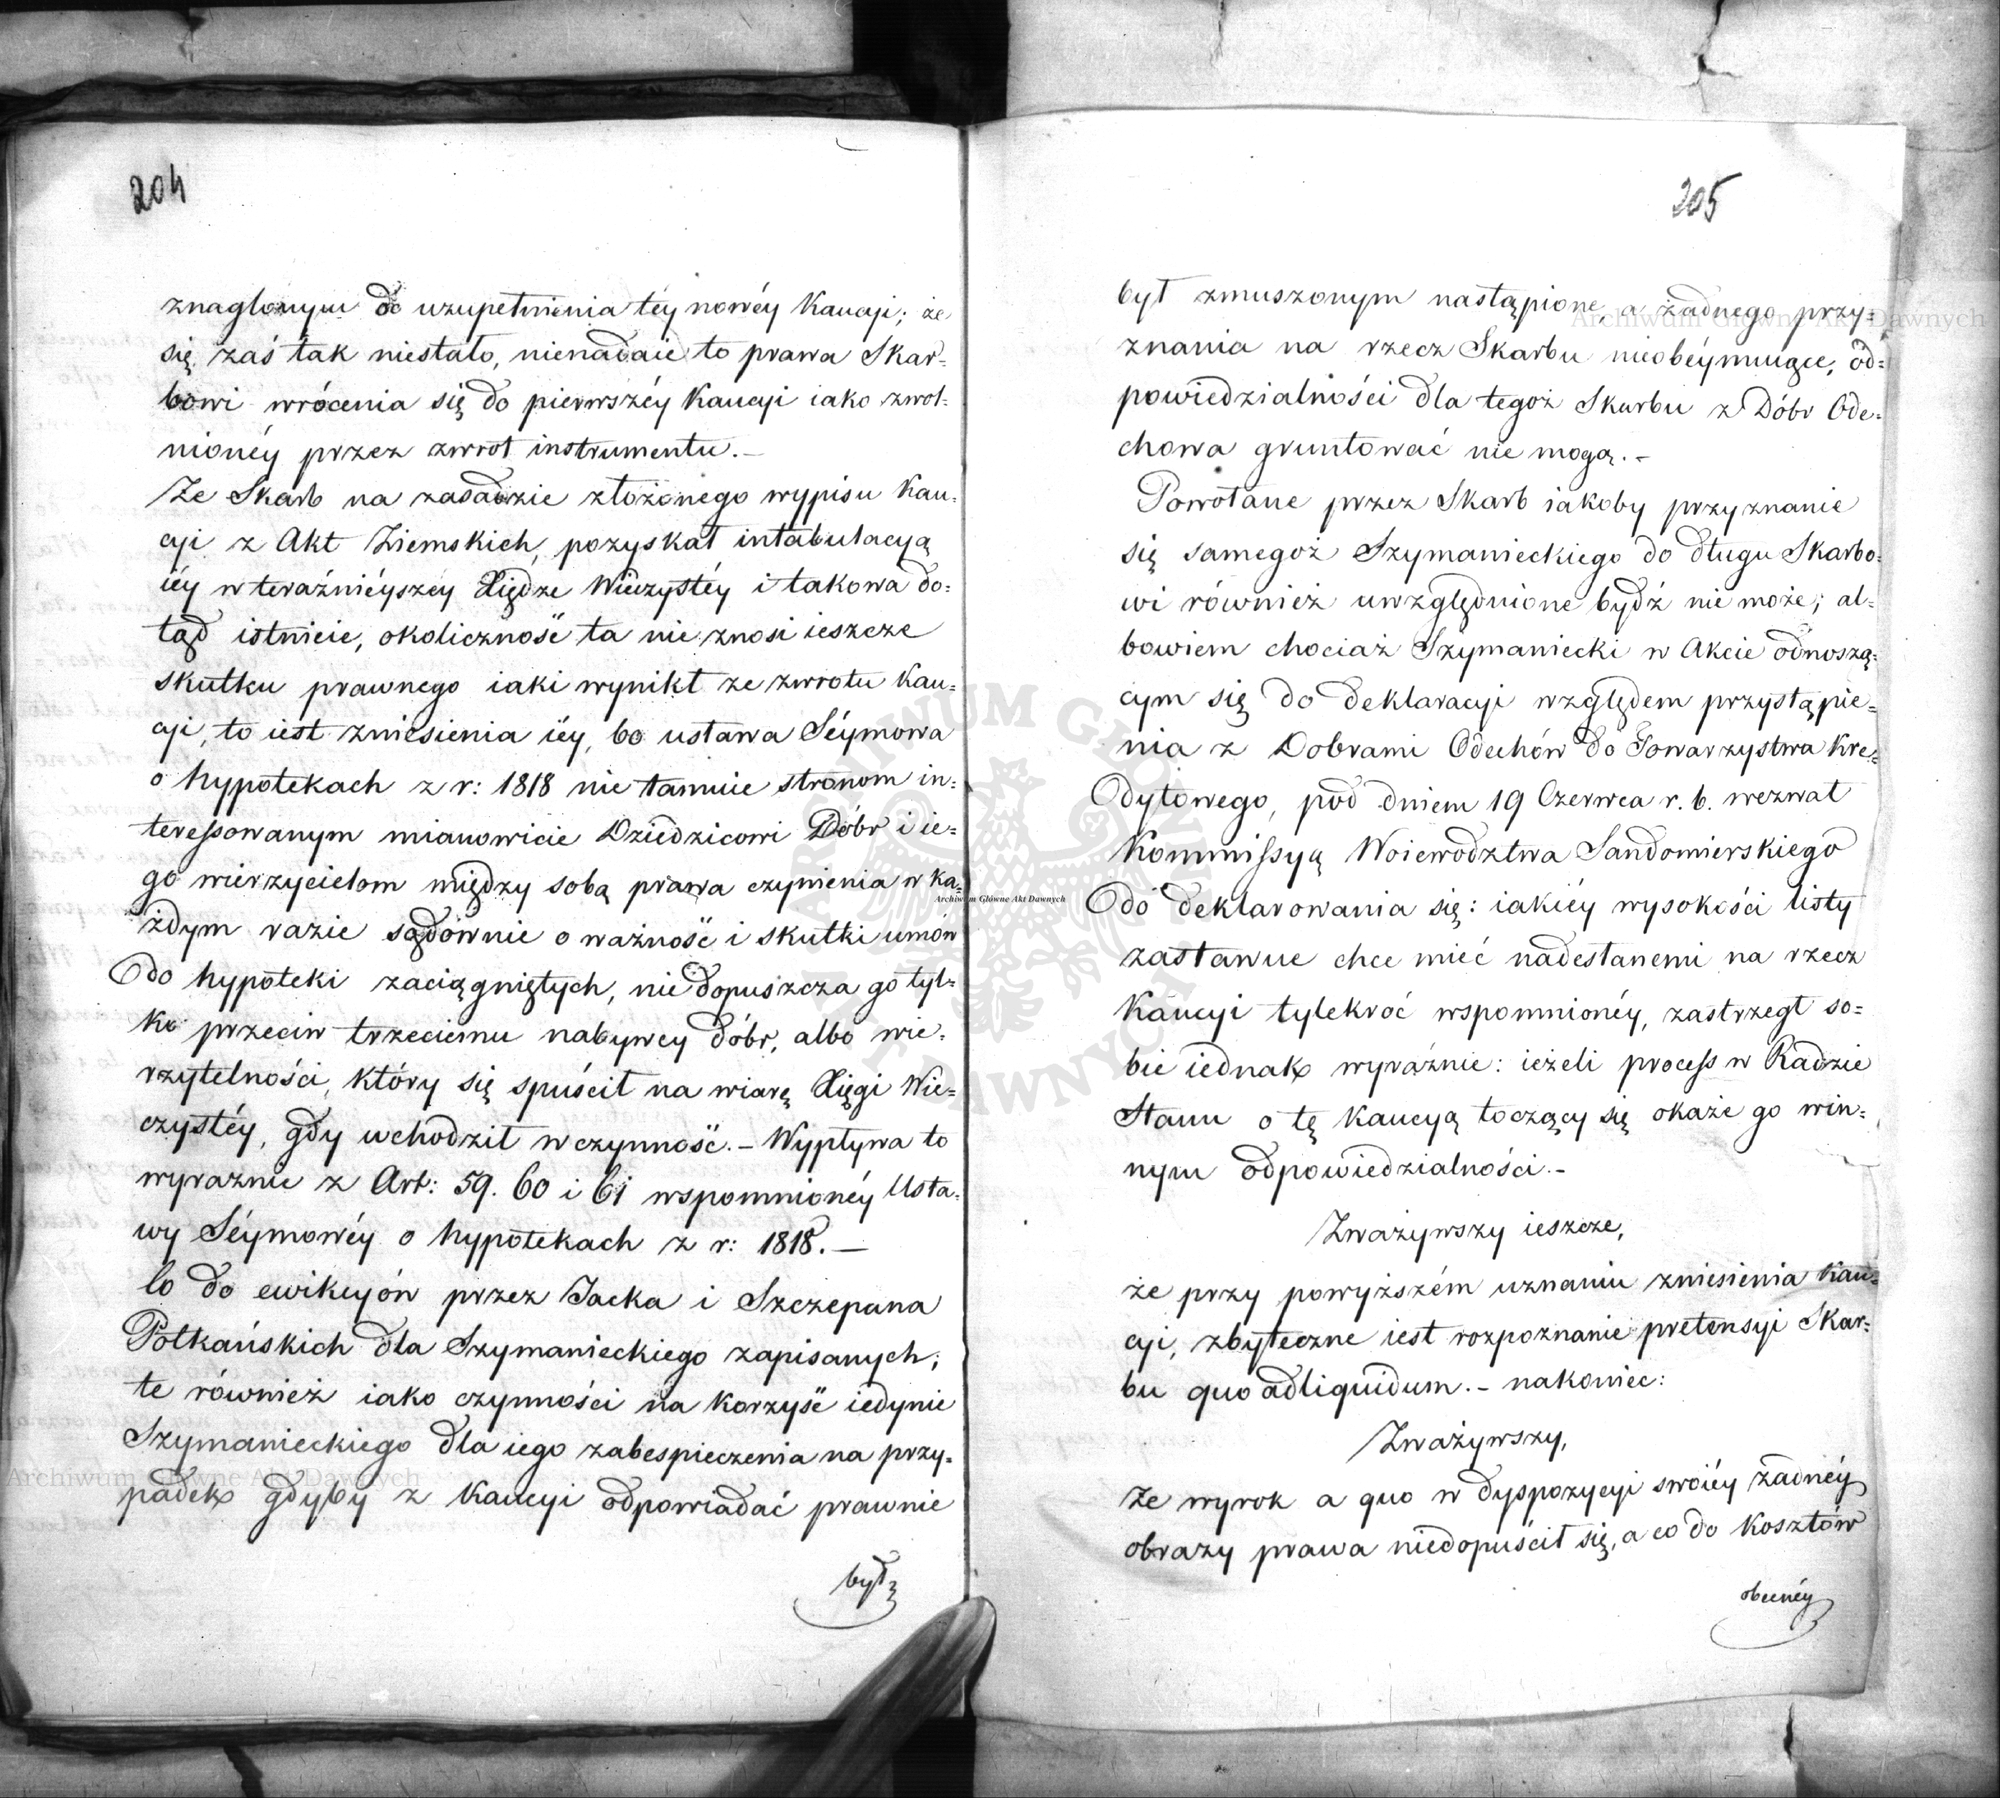 204
znaglonym do uzupełnienia téy nowéy Kaucyi; że
się zaś tak niestało, nienadaie to prawa Skar-
bowi wrócenia się do pierwszéy Kaucyi iako zwol-
nionéy przez zwrot instrumentu.—
Że Skarb na zasadzie złożonego wypisu Kau-
cyi z Akt Ziemskich, pozyskał intabulacyą
iéy w teraźnieyszéy Xiędze Wieczystéy i takowa do-
tąd istnieie, okoliczność ta nie znosi ieszcze
skutku prawnego iaki wynikł ze zwrotu Kau-
cyi, to iest zniesienia iéy, bo ustawa Séymowa
o hypotekach z r: 1818 nie tamuie stronom in-
teressowanym mianowicie Dziedzicowi Dóbr i ie-
go wierzycielom między sobą prawa czynienia w ka-
żdym razie sądownie o ważność i skutki umów
do hypoteki zaciągniętych, nie dopuszcza go tyl-
ko przeciw trzeciemu nabywcy dóbr, albo wie-
rzytelności, który się spuścił na wiarę Xięgi Wie-
czystéy, gdy wchodził w czynność.— Wypływa to
wyraźnie z Art: 59. 60 i 61 wspomnionéy Usta-
wy Séymowéy o hypotekach z r: 1818.—
Co do ewikcyón przez Jacka i Szczepana
Potkańskich dla Szymanieckiego zapisanych;
te również iako czynności na korzyść iedynie
Szymanieckiego dla iego zabespieczenia na przy-
padek gdyby z Kaucyi odpowiadać prawnie
był
205
był zmuszonym nastąpione, a żadnego przy-
znania na rzecz Skarbu nieobéymuiące, od-
powiedzialności dla tegoż Skarbu z Dóbr Ode-
chowa gruntować nie mogą.—
Powołane przez Skarb iakoby przyznanie
się samegoż Szymanieckiego do długu Skarbo-
wi również uwzględnione bydź nie może; al-
bowiem chociaż Szymaniecki w Akcie odnoszą-
cym się do deklaracyi względem przystąpie-
nia z Dobrami Odechów do Towarzystwa Kre-
dytowego, pod dniem 19 Czerwca r. b. wezwał
Kommissyą Woiewodztwa Sandomierskiego
do deklarowania się: iakiéy wysokości listy
zastawne chce mieć nadesłanemi na rzecz
Kaucyi tylekroć wspomnionéy, zastrzegł so-
bie iednak wyraźnie: ieżeli process w Radzie
Stanu o tę Kaucyą toczący się okaże go win-
nym odpowiedzialności.—
Zważywszy ieszcze,
że przy powyższém uznaniu zniesienia Kau-
cyi, zbyteczne iest rozpoznanie pretensyi Skar-
bu quo adliquidum.— nakoniec:
Zważywszy,
że wyrok a quo w dyspozycyi swoiéy żadnéy
obrazy prawa niedopuścił się, a co do Kosztów
obecnéy
Archiwum Główne Akt Dawnych
Archiwum Główne Akt Dawnych
Archiwum Główne Akt Dawnych